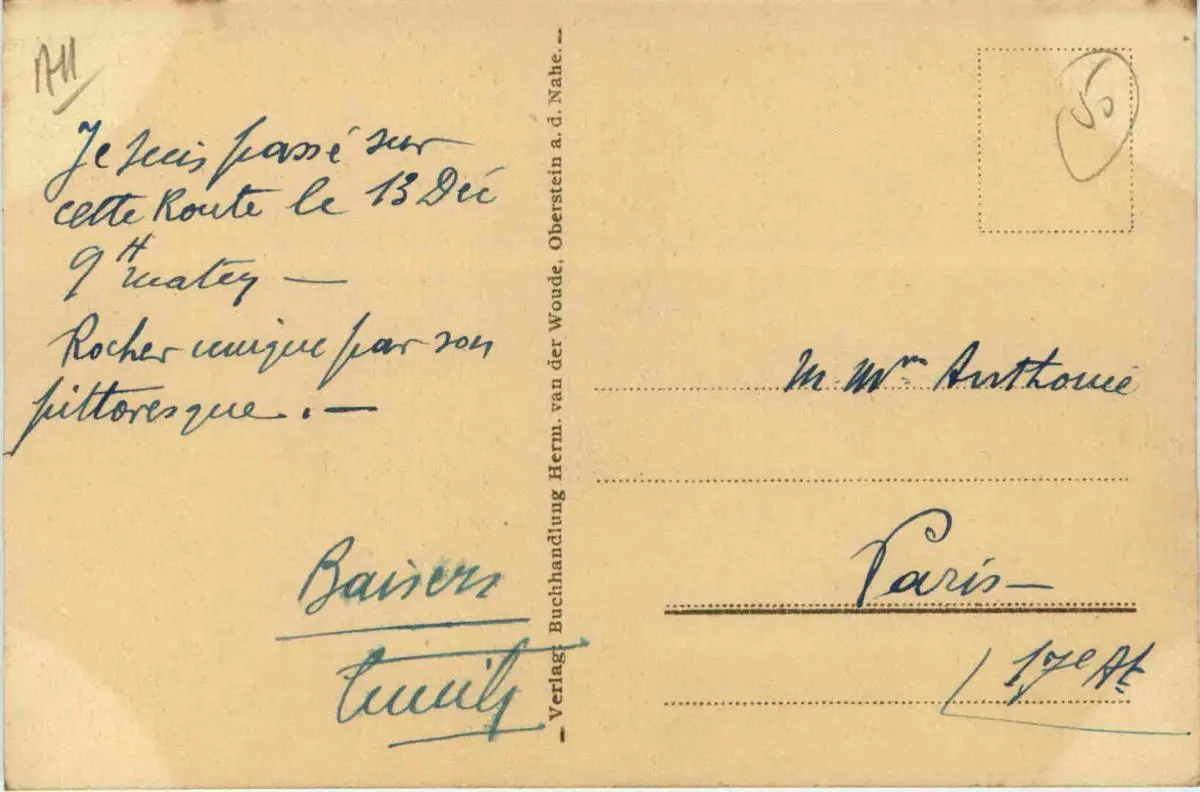 All
Je suis passé sur
cette Route le 13 Déc
9H matin —
Rocher unique par son
pittoresque. —
Baisers
— Verlag: Buchhandlung Herm. van der Woude, Oberstein a. d. Nahe. —
M. Mme Anthonie
Paris —
17e At